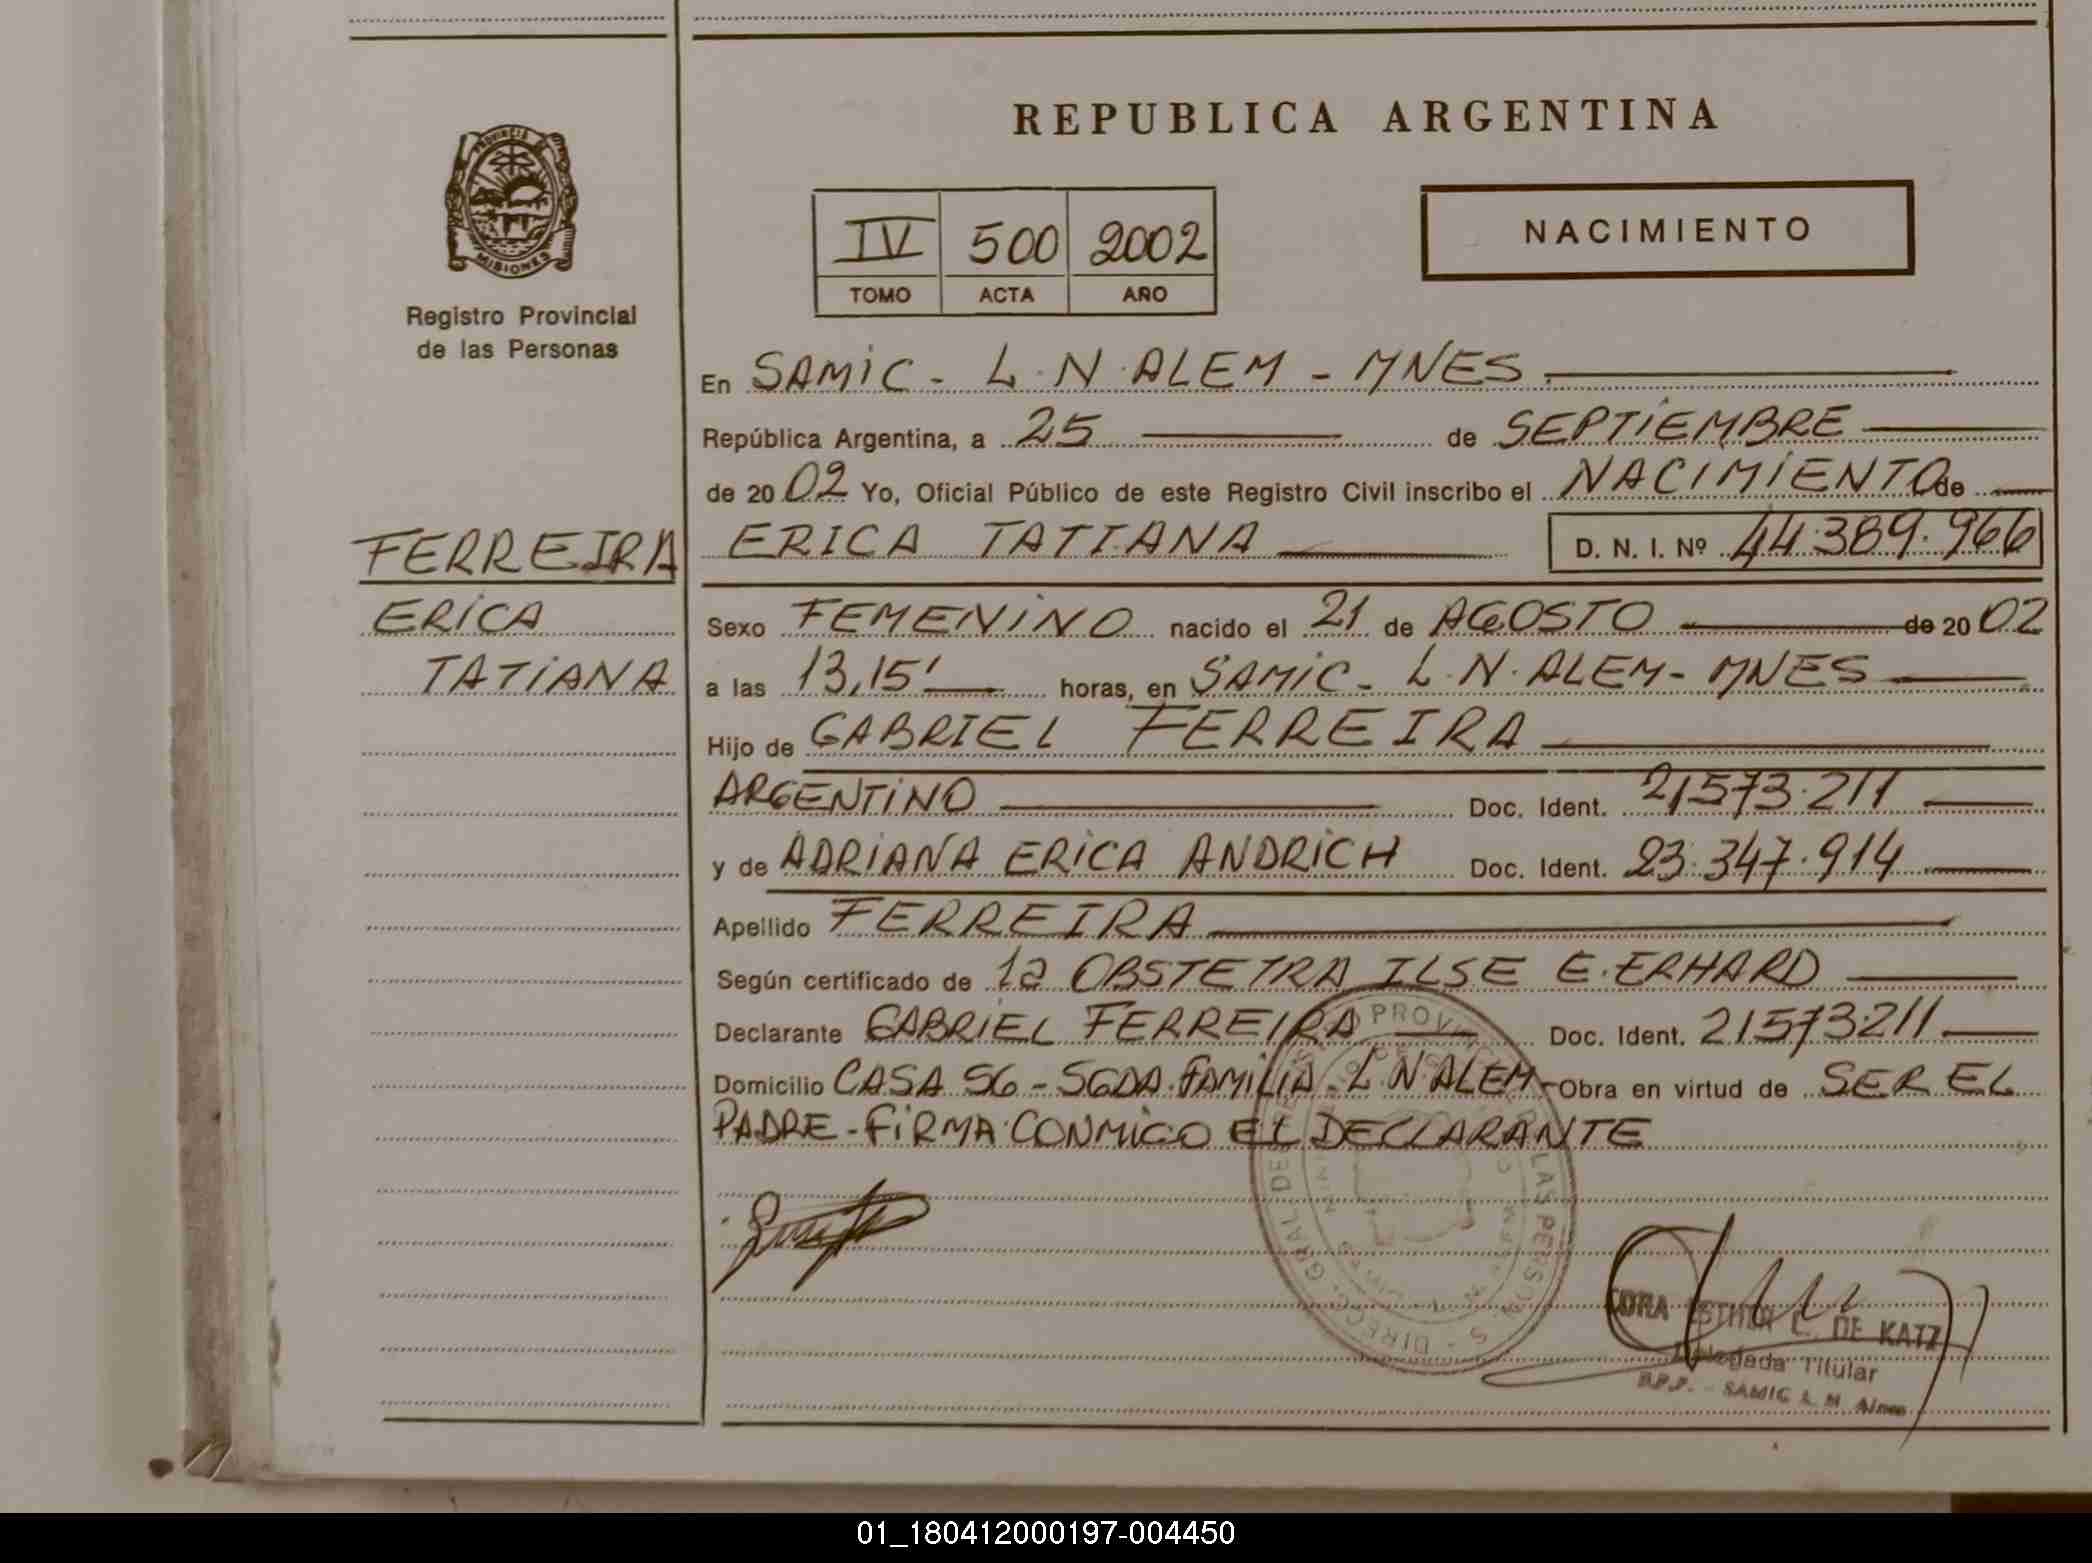 REPUBLICA ARGENTINA
PROVINCIA DE
MISIONES
Registro Provincial
de las Personas
IV 500 2002
TOMO ACTA AÑO
NACIMIENTO
En SAMIC - L.N. ALEM - MNES
República Argentina, a 25 de SEPTIEMBRE
de 2002 Yo, Oficial Público de este Registro Civil inscribo el NACIMIENTO de
FERREIRA
ERICA
TATIANA
ERICA TATIANA D. N. I. Nº 44.389.966
Sexo FEMENINO nacido el 21 de AGOSTO de 2002
a las 13,15' horas, en SAMIC - L.N. ALEM - MNES
Hijo de GABRIEL FERREIRA
ARGENTINO Doc. Ident. 21573.211
y de ADRIANA ERICA ANDRICH Doc. Ident. 23.347.914
Apellido FERREIRA
Según certificado de la OBSTETRA ILSE E. ERHARD
Declarante GABRIEL FERREIRA Doc. Ident. 21573.211
Domicilio CASA 56 - SGDA. FAMILIA - L N ALEM - Obra en virtud de SER EL
PADRE - FIRMA CONMIGO EL DECLARANTE
DIREC. GRAL. DEL PROVINCIAL LAS PERSONAS
ESTHER L. DE KATZ
Delegada Titular
SAMIC L. N. Alem
01_180412000197-004450